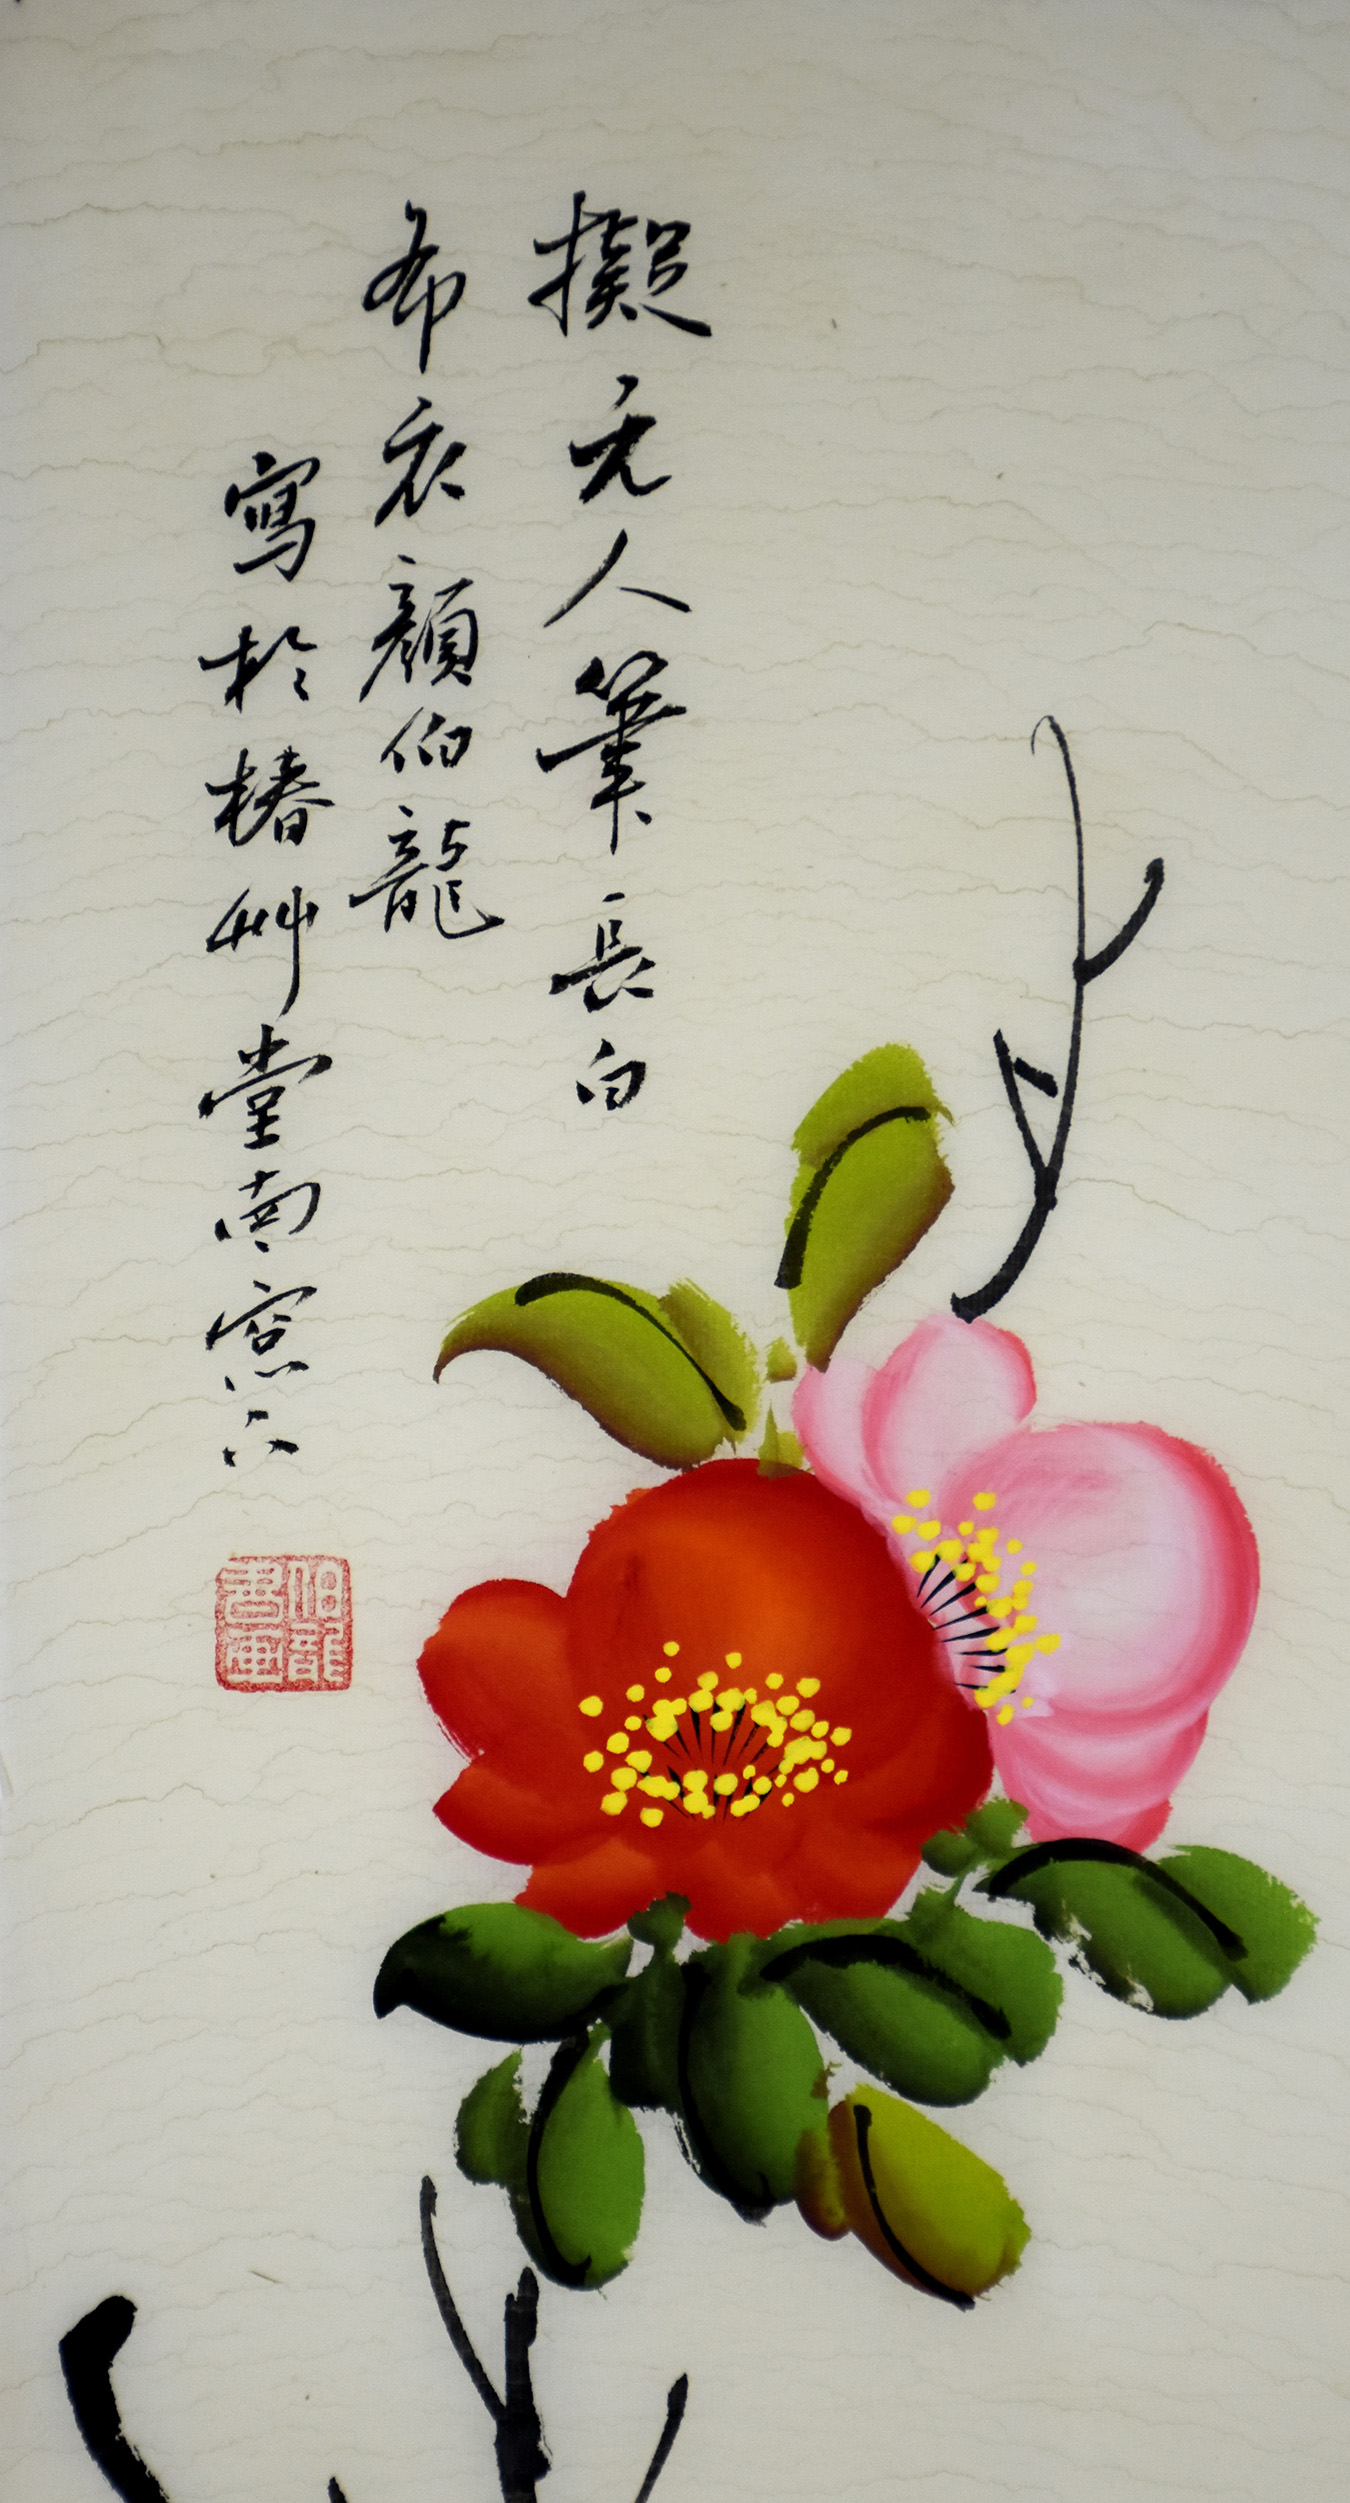 擬元人筆長白
布衣顏伯龍
寫於椿艸堂南窓下
伯龍
書畫